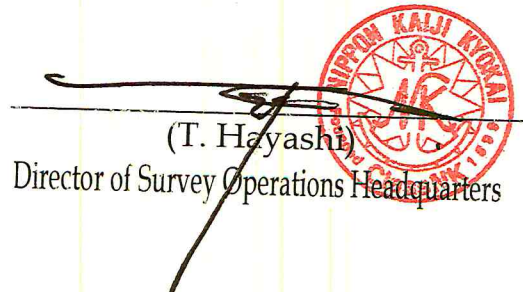 NIPPON KAIJI KYOKAI
NK
(T. Hayashi)
Director of Survey Operations Headquarters
1899